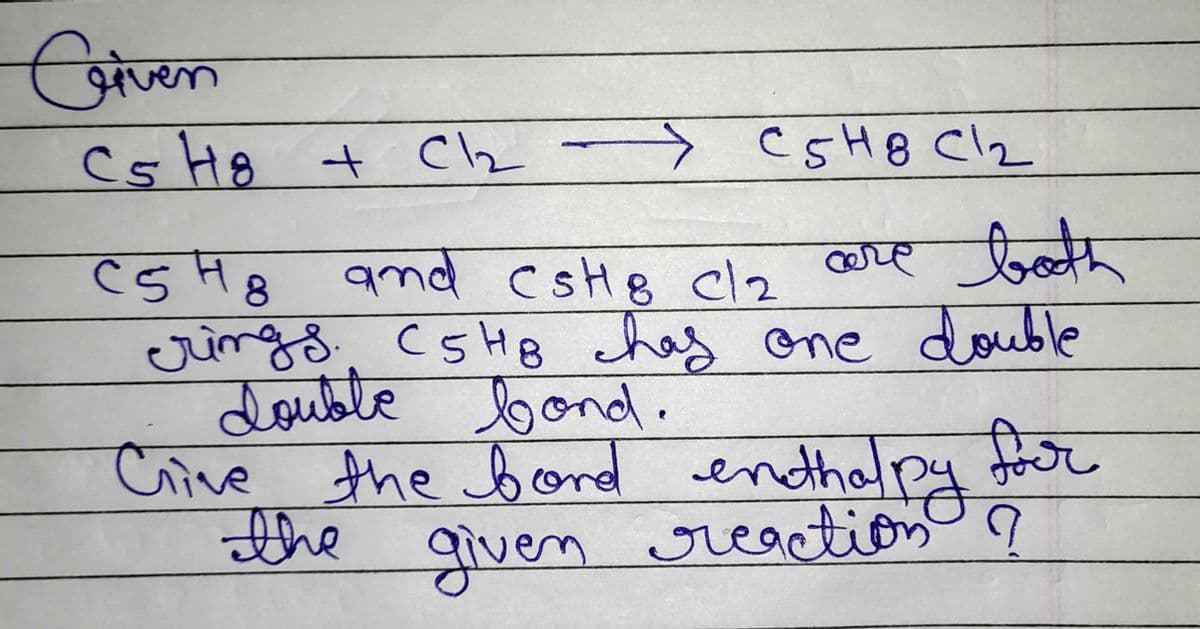 Given
C5 H8 + Cl2 → C5H8 Cl2
C5 H8 and C5H8 Cl2 are both
rings. C5H8 has one double
double bond.
Give the bond enthalpy for
the given reaction ?